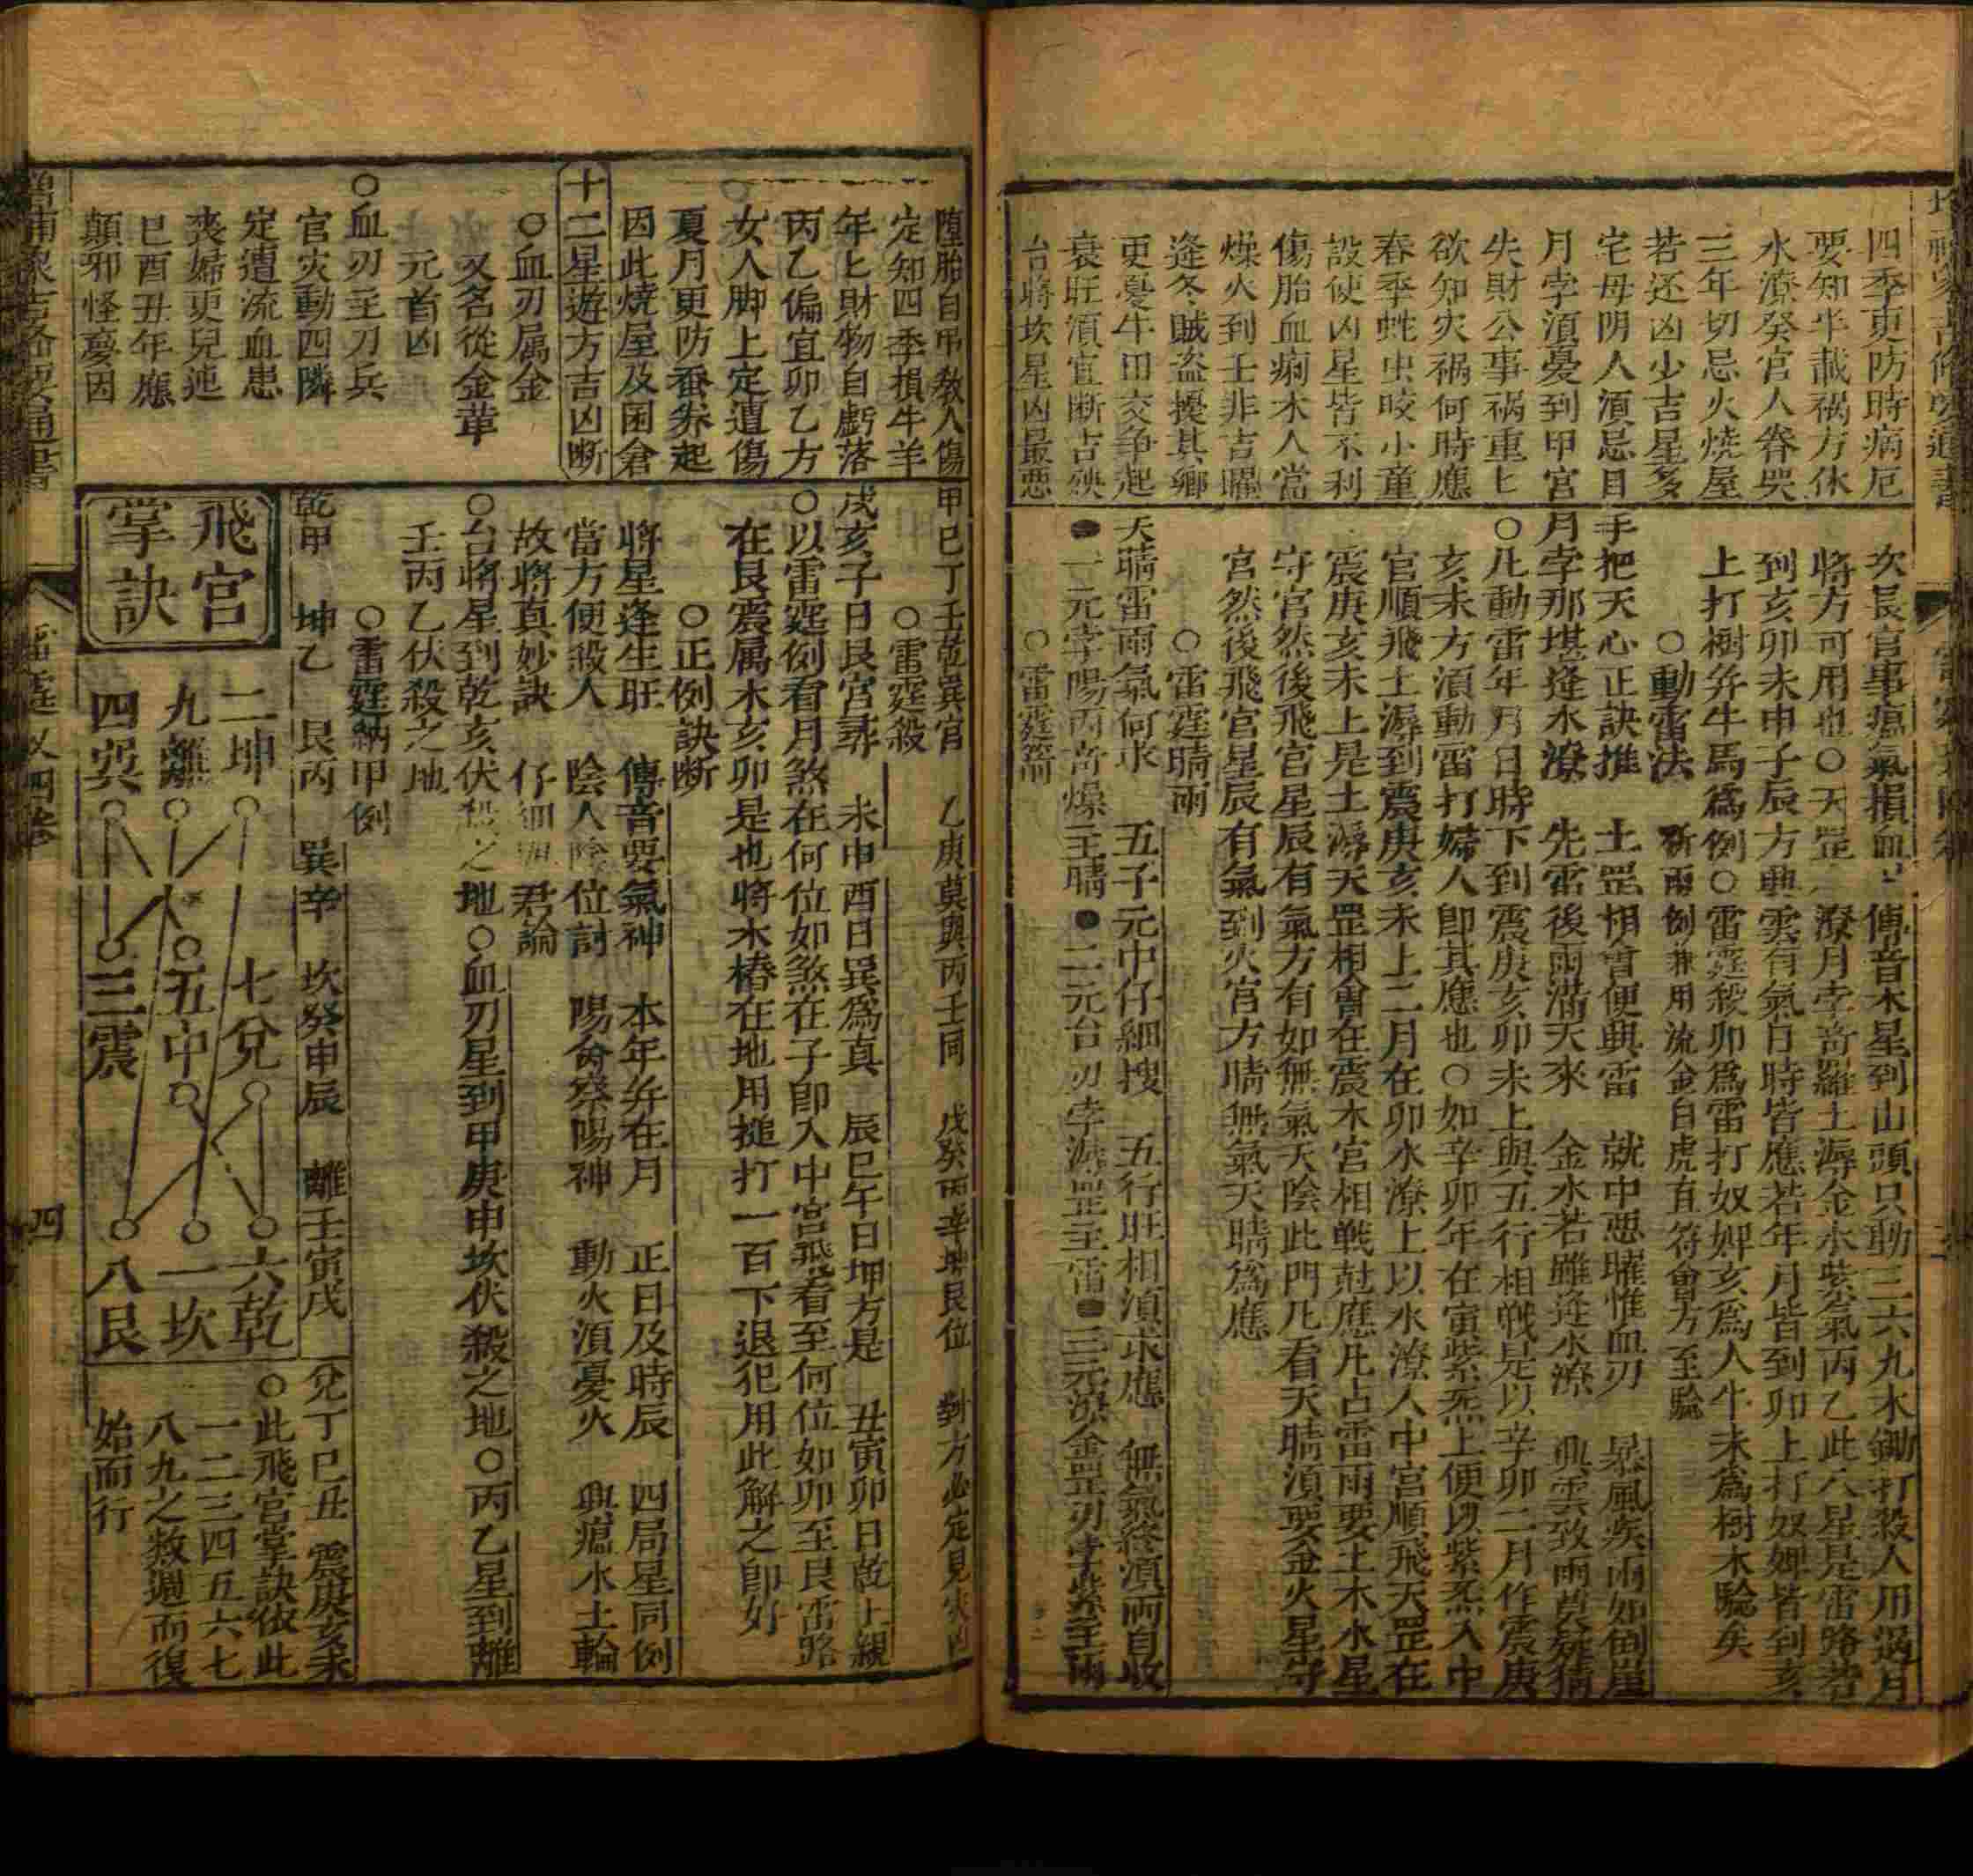 四季更防時病厄
要知半載禍方休
水潦癸宫人眷哭
三年切忌火燒屋
若还凶少吉星多
宅母阴人湏忌目
月孛湏憂到甲宫
失財公事禍重七
欲知灾禍何時應
春季蛇虫咬小童
設使凶星皆不利
傷胎血痢木人當
燥火到壬非吉曜
逢冬賊盗擾其鄉
更憂牛田交争起
衰旺湏宜断吉殃
台將坎星凶最悪
次艮官事瘟氣損血 傳音木星到山頭只動三六九木鋤打殺人用過月
將方可用也○天罡 潦月孛奇羅土溽金水紫氣丙乙此八星是雷路若
到亥卯未申子辰方興雲有氣日時皆應若年月皆到卯上打奴婢皆到亥
上打樹并牛馬爲例○雷霆殺卯爲雷打奴婢亥爲人牛未爲樹木驗矣
○動雷法 祈雨例兼用流金白虎直符會方至驗
手把天心正訣推 土罡相會便興雷 就中悪曜惟血刃 暴風疾雨如倒崖
月孛那堪逢水潦 先雷後雨满天來 金水若雖逢水潦 興雲致雨莫疑猜
○凡動雷年月日時下到震庚亥卯未上與五行相戦是以辛卯二月作震庚
亥未方湏動雷打婦人即其應也○如辛卯年在寅紫炁上便以紫炁入中
宫順飛土溽到震庚亥未上二月在卯水潦上以水潦入中宫順飛天罡在
震庚亥未上是土溽天罡相會在震木宫相戦尅應凡占雷雨要土木水星
守宫然後飛宫星辰有氣方有如無氣天陰此門凡看天晴湏要金火星守
宫然後飛宫星辰有氣到火宫方晴無氣天晴爲應
○雷霆晴雨
天晴雷雨氣何求 五子元中仔細搜 五行旺相湏求應 無氣終湏雨自收
●一元孛陽丙奇燥主晴●二元台刃孛溽罡主雷●三元潦金罡刃孛紫主雨
○雷霆箭
墮胎自吊敎人傷
定知四季損牛羊
年七財物自虧落
丙乙偏宜卯乙方
女人脚上定遭傷
夏月更防蚕养起
因此燒屋及困倉
十二星遊方吉凶断
○血刃属金
又名從金革
元首凶
○血刃主刀兵
官灾動四隣
定遭流血患
喪婦更兒迍
巳酉丑年應
顛邪怪夢因
甲巳丁壬乾巽宫 乙庚莫與丙壬同 戊癸丙辛坤艮位 對方必定見灾凶
○雷霆殺
戌亥子日艮宫尋 未申酉日巽爲真 辰巳午日坤方是 丑寅卯日乾上親
○以雷霆例看月煞在何位如煞在子即入中宫飛看至何位如卯至艮雷路
在艮震属木亥卯是也將木樁在地用搥打一百下退犯用此解之即好
○正例訣断
將星逢生旺 傳音要氣神 本年并在月 正日及時辰 四局星同例
當方便殺人 陰人陰位討 陽命察陽神 動火湏憂火 興瘟水土輪
故將真妙訣 仔細 君論
○台將星到乾亥伏殺之地○血刃星到甲庚申坎伏殺之地○丙乙星到離
壬丙乙伏殺之地
○雷霆納甲例
乾甲 坤乙 艮丙 巽辛 坎癸申辰 離壬寅戌 兌丁巳丑 震庚亥未
飛宫
掌訣
二坤
九離
四巽
七兌
五中
三震
六乾
一坎
八艮
○此飛宫掌訣依此
一二三四五六七
八九之数週而復
始而行
四